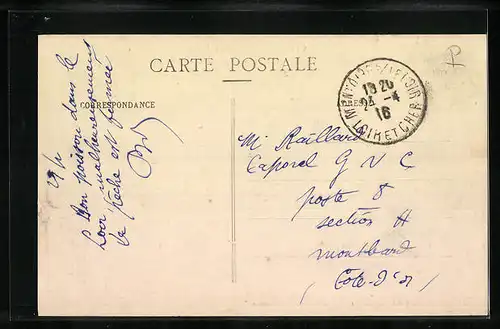 CARTE POSTALE
CORRESPONDANCE
29/4
Bon poisson dans le
Loir malheureusement
la pêche est fermée
MONTOIRE S/LE LOIR
18 20
24 -4
16
LOIR ET CHER
M. Raillard
Caporal G V C
poste 8
section H
montbard
(Cote-d'Or)